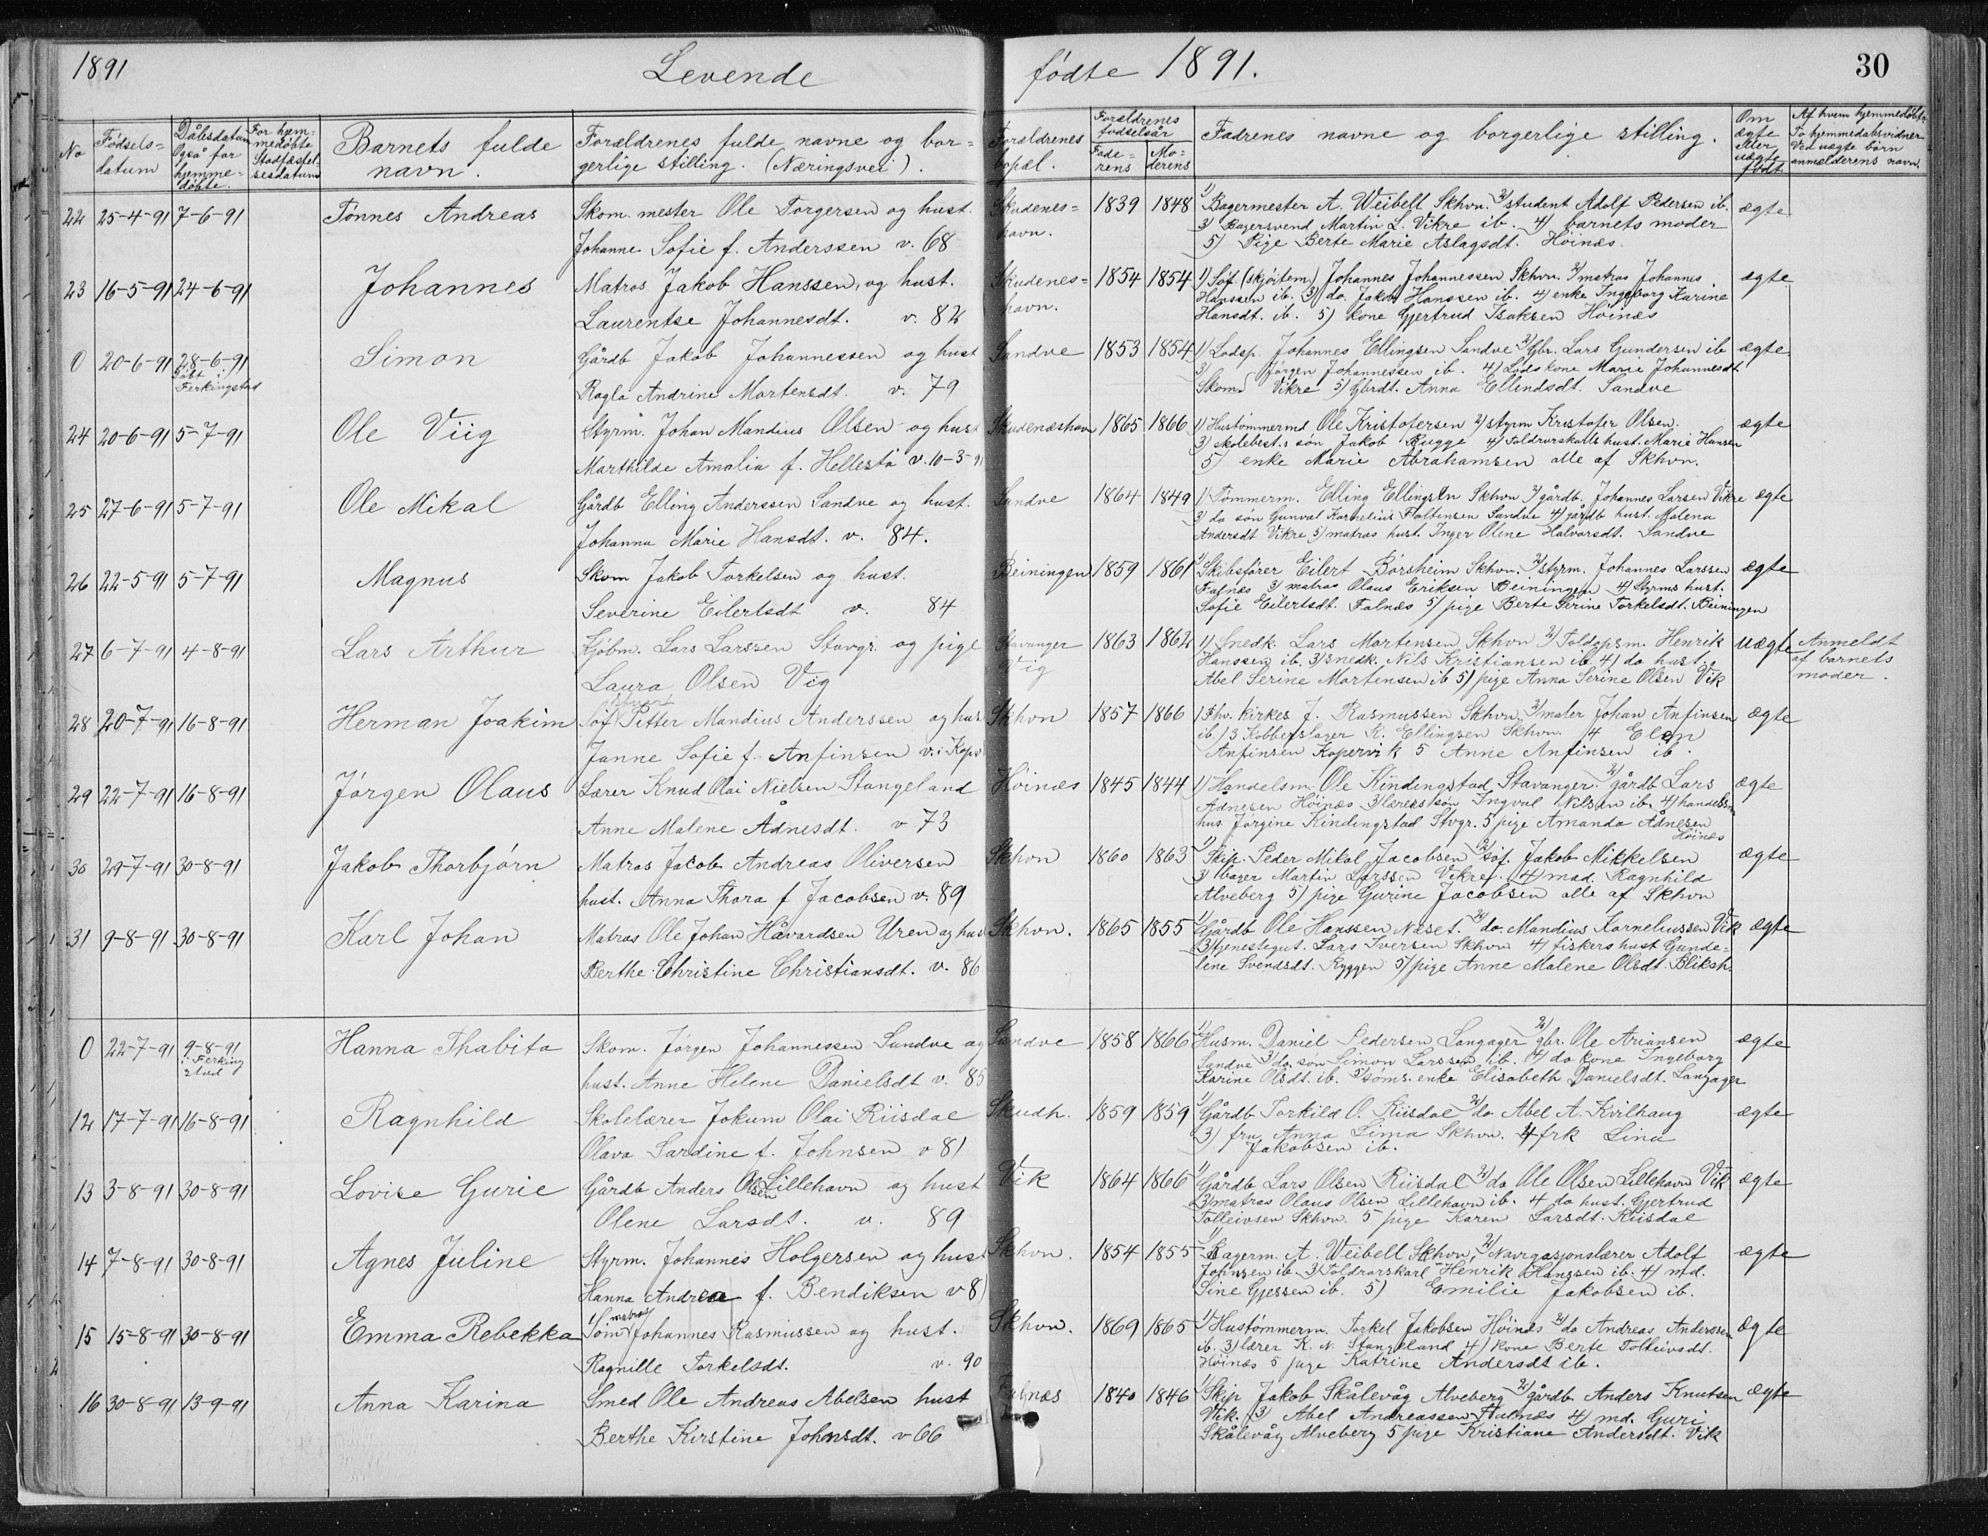 1891
Levende
fødte 1891.
30
No
Fødsels-
datum
Dåbsdatum
Også for
hjemme-
døbte.
For hjem-
medøbte
Stadfæstel-
sesdatum
Barnets fulde
navn.
Forældrenes fulde navne og bor-
gerlige stilling. (Næringsvei).
Forældrenes
bopæl.
Forældrenes
fødselsår
Fade-
rens
Mo-
derens
Fadrenes navne og borgerlige stilling.
Om
ægte
eller
uægte
født
Af hvem hjemmedøbt
To hjemmedåbsvidner
Ved uægte børn
anmelderens navn.
22 25-4-91 7-6-91 Tønnes Andreas
Skom. mester Ole Torgersen og hust.
Johanne Sofie f. Anderssen v. 68
Skudenes-
havn.
1839 1848
1) Bagermester A. Weibell Skhvn. 2) student Adolf Pedersen ib.
3) Bagersvend Martin L. Vikre ib. 4) barnets moder
5) Pige Berte Marie Aslagsdt. Høinæs.
ægte
23 16-5-91 24-6-91 Johannes
Matros Jakob Hanssen, og hust.
Laurentse Johannesdt. v. 82
Skudenes-
havn.
1854 1854
1) Søf. (skjørtem) Johannes Johannessen Skhvn. 2) matros Johannes
Hanssen ib. 3) do. Jakob Hanssen ib. 4) enke Ingeborg Karine
Hansdt. ib. 5) kone Gjertrud Isaksen Høinæs
ægte
0 20-6-91 28-6-91
døbt i
Ferkingstad
Simon
Gårdb Jakob Johannessen og hust
Ragla Andrine Mortensdt. v. 79
Sandve
1853 1854
1) Lodsp. Johannes Ellingsen Sandve 2) Gbr. Lars Gundersen ib
3) Jørgen Johannessen ib. 4) Lods kone Marie Johannesdt
Skom) Vikre 5) Gbrdt. Anna Ellendsdt. Sandve
ægte
24 20-6-91 5-7-91 Ole Viig
Styrm. Johan Mandius Olsen og hust
Marthilde Amalia f. Hellestø v. 10-3-91
Skudenæshavn
1865 1866
1) Hustømmermd Ole Kristofersen 2) styrm Kristofer Olsen.
3) skolebest.s søn Jakob Rugge 4) Toldrorskalls hust. Marie Hansen
5) enke Marie Abrahamsen alle af Skhvn.
ægte
25 27-6-91 5-7-91 Ole Mikal
Gårdb Elling Anderssen Sandve og hust.
Johanna Marie Hansdt. v. 84.
Sandve
1864 1849
1) Tømmerm. Elling Ellingsen Skhvn 2) gårdb. Johannes Larsen Vikre
3) do søn Gunval Kornelius Faltinsen Sandve 4) gårdb hust. Malena
Andersdt Vikre 5) matros hust. Inger Olene Halvorsdt. Sandve
ægte
26 22-5-91 5-7-91 Magnus
Skom Jakob Torkelsen og hust.
Severine Eilertsdt v. 84
Beiningen
1859 1861
1) Skibsfører Eilert Børsheim Skhvn. 2) styrm. Johannes Larssen
Falnæs 3) matros Olaus Eriksen Beiningen 4) Styrms hust.
Sofie Eilertsdt. Falnæs 5) pige Berte Serine Torkelsdt. Beiningen
ægte
27 6-7-91 4-8-91 Lars Arthur
Kjøbm. Lars Larssen Stavgr. og pige
Laura Olsen Vig
Stavanger
Vig
1863 1862
1) Snedk. Lars Mortensen Skhvn 2) Toldopsm. Henrik
Hanssen ib. 3) snedk. Nils Kristiansen ib 4) do hust.
Abel Serine Mortensen ib 5) pige Anna Serine Olsen Vik
uægte
Anmeldt
af barnets
moder.
28 20-7-91 16-8-91 Herman Joakim
Søf Petter Mandius Anderssen og hus
Janne Sofie f. Anfinsen v. i Kopv
Skhvn
1857 1866
1) Fhv. kirkes f. Rasmussen Skhvn. 2) maler Johan Anfinsen
ib. 3 Kobberslager K. Ellingsen Skhvn. 4 Elen
Anfinsen Kopervik 5 Anne Anfinsen ib.
ægte
29 22-7-91 16-8-91 Jørgen Olaus
Lærer Knud Olai Nielsen Stangeland
Anne Malene Ådnesdt. v 73
Høinæs
1845 1844
1) Handelsm. Ole Kindingstad Stavanger. 2) gårdb Lars
Adnesen Høinæs 3) lærers søn Ingval Nilsen ib. 4) handelsm
hus Jørgine Kindingstad Stvgr. 5 pige Amanda Ådnesen
Høinæs
ægte
30 29-7-91 30-8-91 Jakob Thorbjørn
Matros Jacob Andreas Oliversen
hust. Anna Thora f Jacobsen v. 89
Skhvn
1860 1863
1) Skip. Peder Mikal Jacobsen 2) søf. Jakob Mikkelsen
3) bager Martin Larssen Vikre. 4) mad. Ragnhild
Alveberg 5) pige Gurine Jacobsen alle af Skhvn
ægte
31 9-8-91 30-8-91 Karl Johan
Matros Ole Johan Håvardsen Uren og hus
Berthe Christine Christiansdt. v. 86
Skhvn.
1865 1855
1) Gårdb Ole Hanssen Næset. 2) do. Mandius Korneliussen Vik
3) tjenestegut. Lars Iversen Skhvn 4) fiskers hust Gunde-
lene Svendsdt. Ryggen 5) pige Anne Malene Olsdt. Bliksh.
ægte
0 22-7-91 9-8-91
i Ferking
stad
Hanna Thabita
Skom. Jørgen Johannessen Sandve og
hust. Anne Helene Danielsdt v. 85
Sandve
1858 1866
1) Husm. Daniel Pedersen Langager 2) gbr. Ole Ariansen
Sandve 3) do. søn Simon Larssen ib. 4) do kone Ingeborg
Karine Olsdt. ib. 5) søms. enke Elisabeth Danielsdt. Langager
ægte
12 17-7-91 16-8-91 Ragnhild
Skolelærer Jokum Olai Riisdal
Olava Sardine f. Johnsen v 81
Skudh.
1859 1859
1) Gårdb Torkild O. Riisdal 2) do Abel A. Kvilhaug
3) fru Anna Lima Skhvn. 4 frk Lina
Jakobsen ib.
ægte
13 3-8-91 30-8-91 Lovise Gurie
Gårdb Anders Olsen Lillehavn og hust
Olene Larsdt. v. 89
Vik
1864 1866
1) Gårdb Lars Olsen Riisdal 2) do Ole Olsen Lillehavn Vik
3) matros Olaus Olsen Lillehavn ib. 4 do hust. Gjertrud
Tolleivsen Skhvn. 5 pige Karen Larsdt. Riisdal
ægte
14 7-8-91 30-8-91 Agnes Juline
Styrm. Johannes Holgersen og hust
Hanna Andrea f. Bendiksen v 81
Skhvn.
1854 1855
1) Bagerm. A. Weibell Skhvn. 2) Navigasjonslærer Adolf
Johnsen ib. 3) Toldrorskarl Henrik Hanssen ib. 4) md.
Sine Gjessen ib. 5) Emilie Jakobsen ib.
ægte
15 15-8-91 30-8-91 Emma Rebekka
matros
Tøm Johannes Rasmussen og hust.
Ragnille Torkelsdt. v. 90
Skhvn.
1869 1865
1) Hustømmerm. Torkel Jakobsen Høinæs 2) do Andreas Anderssen
ib. 3) lærer K. N. Stangeland 4) kone Berte Tolleivsdt.
Høinæs 5 pige Katrine Andersdt ib.
ægte
16 30-8-91 13-9-91 Anna Karina
Smed Ole Andreas Abelsen hust
Berthe Kirstine Johnsdt. v 66
Falnæs
1840 1846
1) Skip Jakob Skålevåg Alveberg 2) gårdb. Anders Knutsen
Vik. 3) Abel Andreassen Falnæs 4) md. Guri
Skålevåg Alveberg 5 pige Kristiane Andersdt. Vik
ægte